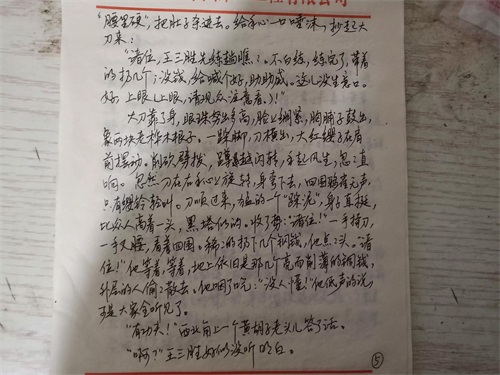 有限公司
“腰里硬”,把肚子杀进去。给手心一口唾沫,抄起大
刀来:
“诸位,王三胜先练趟瞧瞧。不白练,练完了,带着
的扔几个;没钱,给喊个好,助助威。这儿没生意口。
好,上眼(上眼,请观众注意看。)!”
大刀靠了身,眼珠努出多高,脸上绷紧,胸脯子鼓出,
象两块老桦木根子。一跺脚,刀横出,大红缨子在肩
前摆动。削砍劈拨,蹲越闪转,手起风生,忽忽直
响。忽然刀在右手心上旋转,身弯下去,四围鸦雀无声,
只有缨铃轻叫。刀顺过来,猛的一个“跺泥”,身子直挺,
比众人高着一头,黑塔似的。收了势:“诸位!”一手持刀,
一手叉腰,看着四围。稀稀的扔下几个铜钱,他点点头。“诸
位!”他等着,等着,地上依旧是那几个亮而削薄的铜钱,
外层的人偷偷散去。他咽了口气:“没人懂!”他低声的说,
可是大家全听见了。
“有功夫!”西北角上一个黄胡子老头儿答了话。
“啊?”王三胜好似没听明白。
⑤